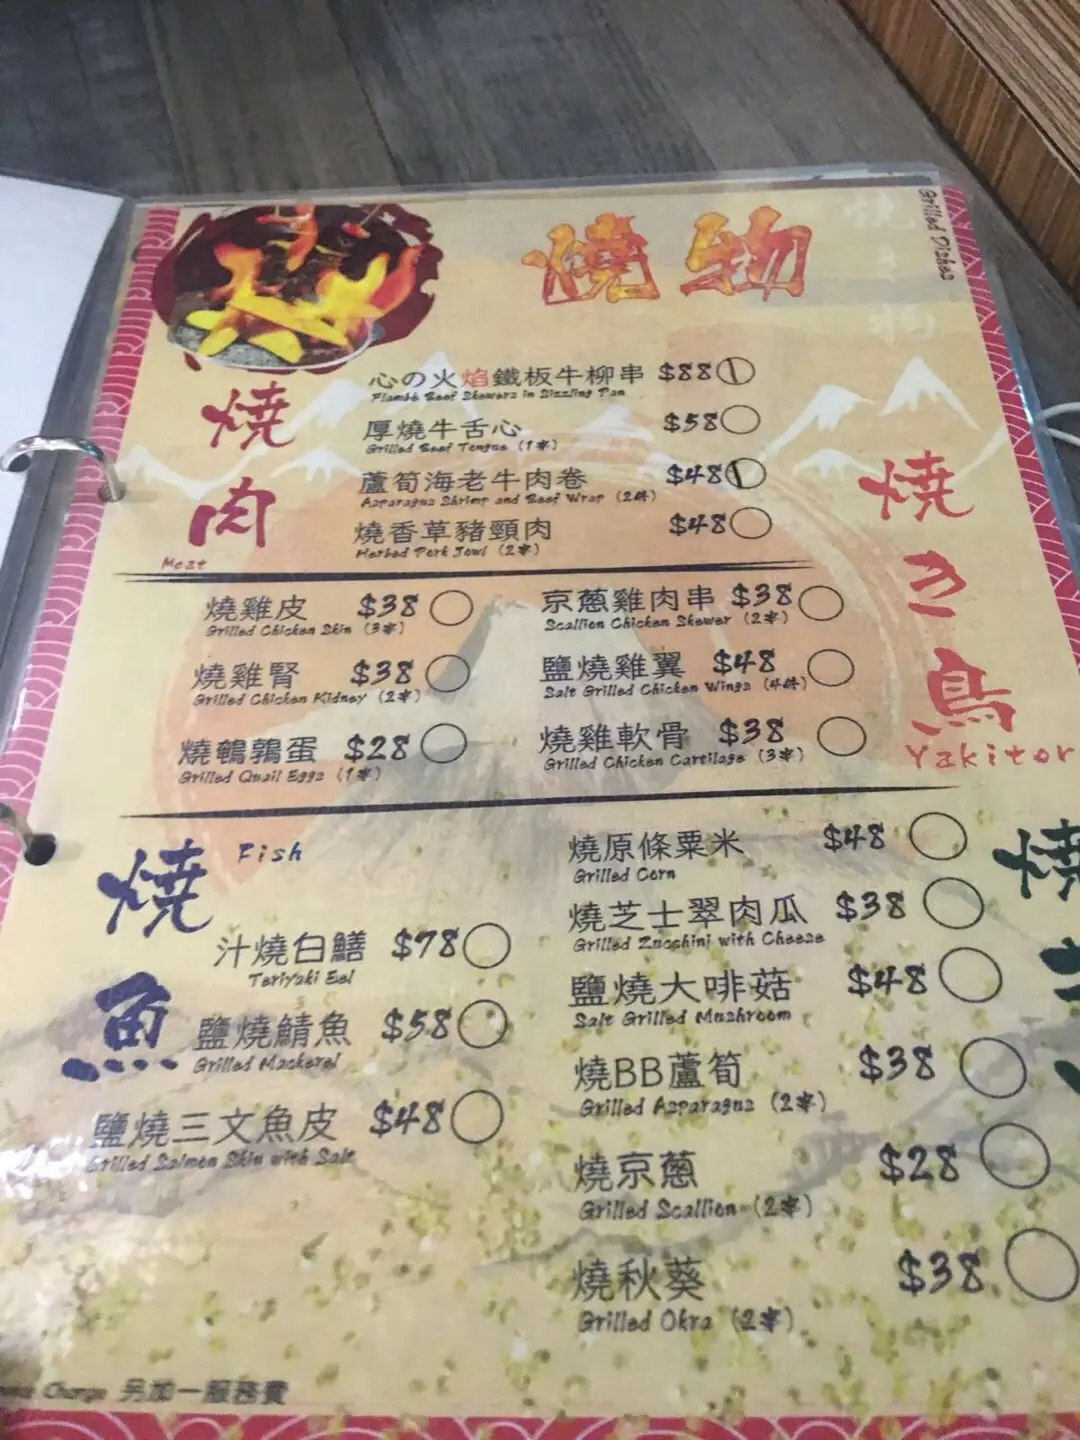 燒物
Grilled Dishes
燒肉
Meat
心の火焰鐵板牛柳串 $88
Flambé Beef Skewers in Sizzling Pan
厚燒牛舌心 $58
Grilled Beef Tongue (1串)
蘆筍海老牛肉卷 $48
Asparagus Shrimp and Beef Wrap (2件)
燒香草豬頸肉 $48
Herbed Pork Jowl (2串)
燒き鳥
Yakitor
燒雞皮 $38
Grilled Chicken Skin (3串)
京蔥雞肉串 $38
Scallion Chicken Skewer (2串)
燒雞腎 $38
Grilled Chicken Kidney (2串)
鹽燒雞翼 $48
Salt Grilled Chicken Wings (4件)
燒鵪鶉蛋 $28
Grilled Quail Eggs (1串)
燒雞軟骨 $38
Grilled Chicken Cartilage (3串)
燒魚
Fish
汁燒白鱔 $78
Teriyaki Eel
鹽燒鯖魚 $58
Grilled Mackerel
鹽燒三文魚皮 $48
Grilled Salmon Skin with Salt
燒
燒原條粟米 $48
Grilled Corn
燒芝士翠肉瓜 $38
Grilled Zucchini with Cheese
鹽燒大啡菇 $48
Salt Grilled Mushroom
燒BB蘆筍 $38
Grilled Asparagus (2串)
燒京蔥 $28
Grilled Scallion (2串)
燒秋葵 $38
Grilled Okra (2串)
Charge 另加一服務費